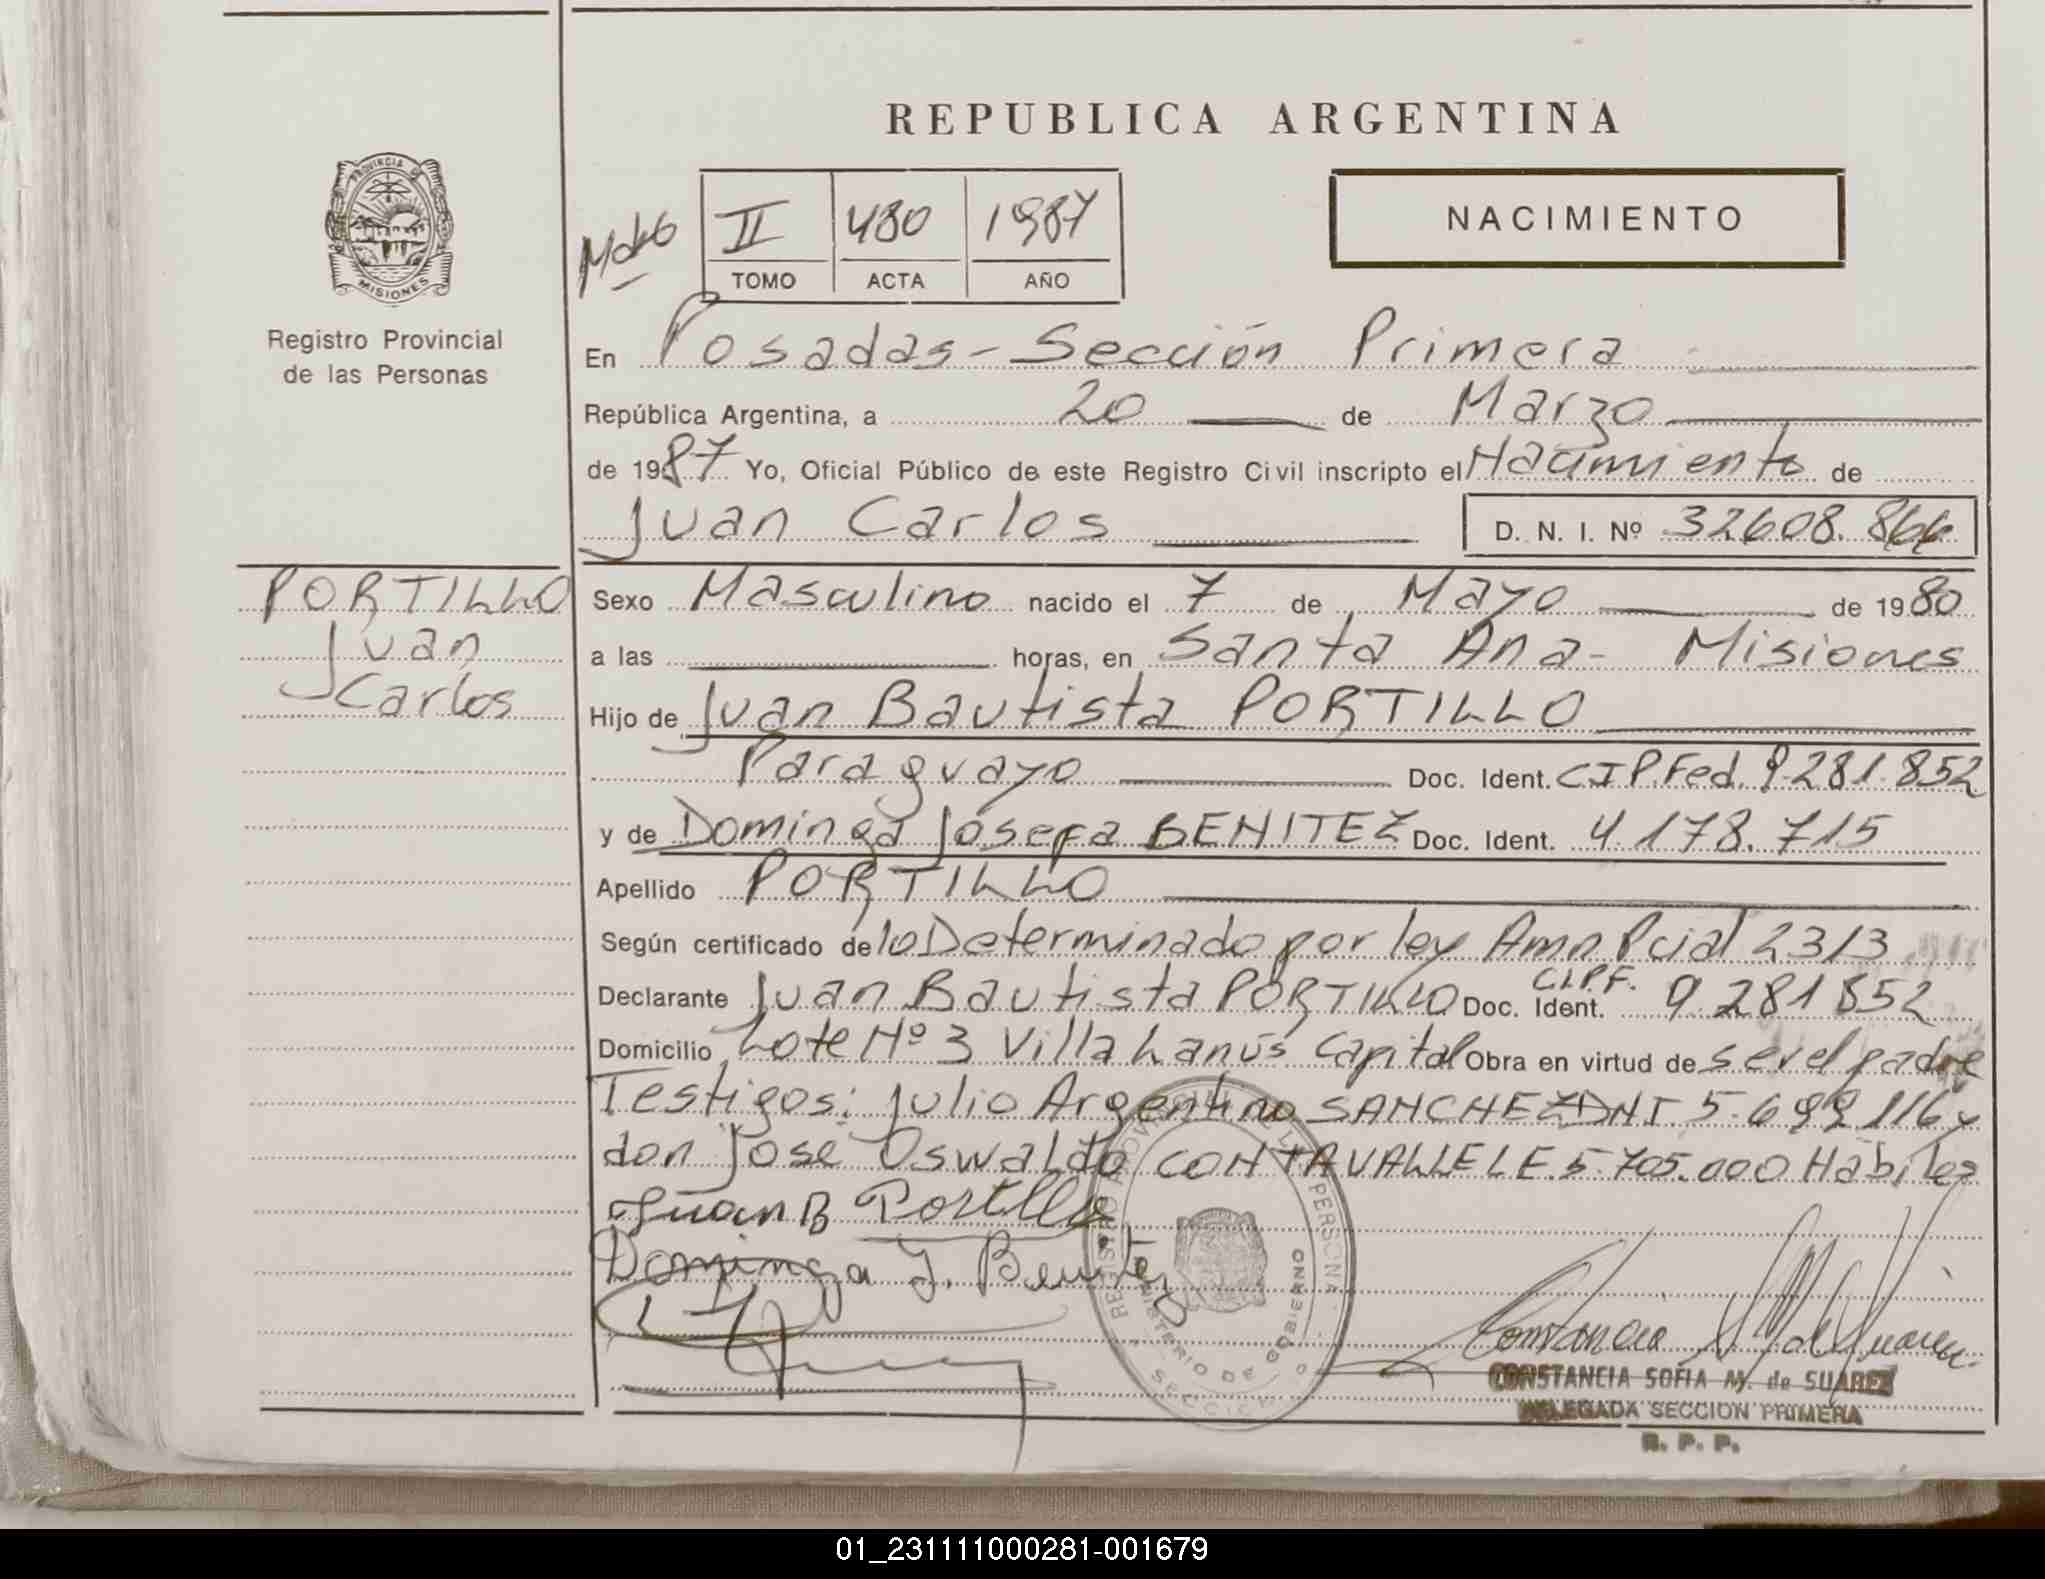 REPUBLICA ARGENTINA
PROVINCIA DE MISIONES
Registro Provincial
de las Personas
II 480 1987
TOMO ACTA AÑO
NACIMIENTO
En Posadas - Sección Primera
República Argentina, a 20 de Marzo
de 1987 Yo, Oficial Público de este Registro Civil inscripto el Nacimiento de
Juan Carlos D. N. I. Nº 32608.866
PORTILLO
Juan
Carlos
Sexo Masculino nacido el 7 de Mayo de 1980
a las horas, en Santa Ana - Misiones
Hijo de Juan Bautista PORTILLO
Paraguayo Doc. Ident. CIP.Fed. 9.281.852
y de Dominga Josefa BENITEZ Doc. Ident. 4.178.715
Apellido PORTILLO
Según certificado de lo Determinado por ley Amn. Pcial 2313
Declarante Juan Bautista PORTILLO Doc. Ident. C.I.P.F. 9.281852
Domicilio Lote Nº 3 Villa Lanús Capital Obra en virtud de ser el padre
Testigos: Julio Argentino SANCHEZ DNI 5.699.116 y
don José Oswaldo CONTAVALLE L.E. 5.705.000 Hábiles
Juan B Portillo
Dominga J. Benitez
REGISTRO PROVINCIAL DE LAS PERSONAS
MINISTERIO DE GOBIERNO
Constancia S M de Suarez
CONSTANCIA SOFIA M. de SUAREZ
DELEGADA SECCION PRIMERA
R. P. P.
01_231111000281-001679